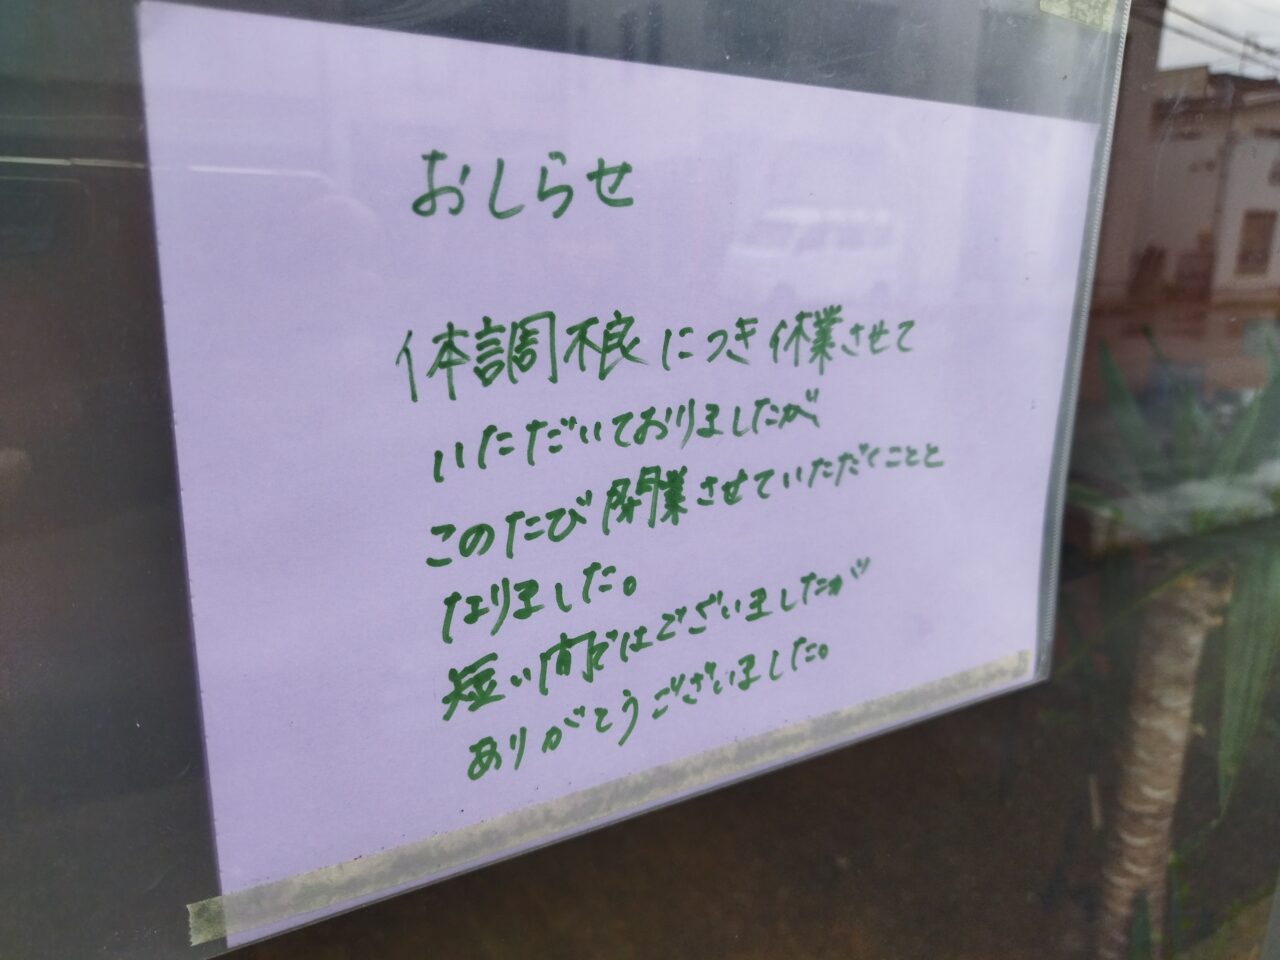 おしらせ
体調不良につき休業させて
いただいておりましたが
このたび閉業させていただくことと
なりました。
短い間ではございましたが
ありがとうございました。